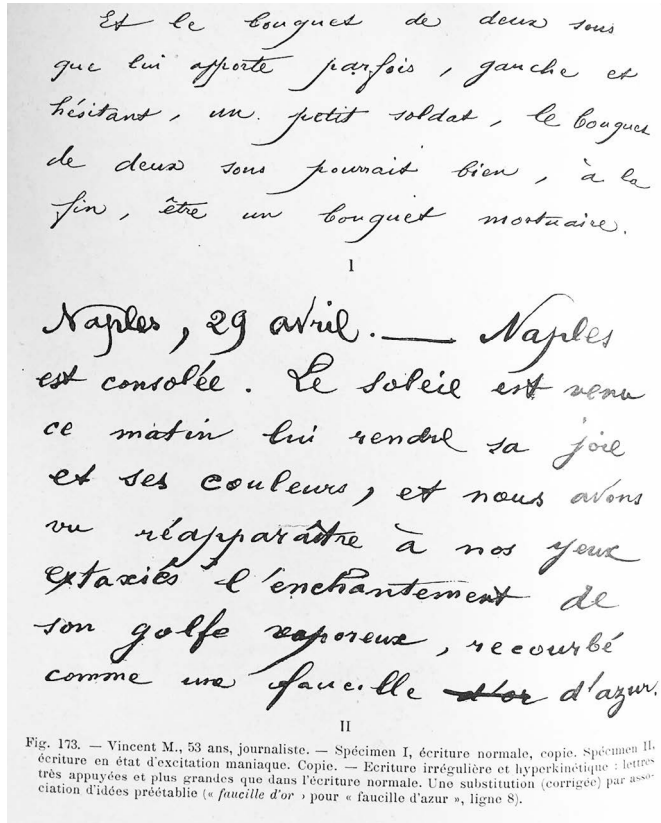 Et le bouquet de deux sous
que lui apporte parfois, gauche et
hésitant, un petit soldat, le bouquet
de deux sous pourrait bien, à la
fin, être un bouquet mortuaire.
I
Naples, 29 avril. — Naples
est consolée. Le soleil est venu
ce matin lui rendre sa joie
et ses couleurs, et nous avons
vu réapparaître à nos yeux
extaxiés l'enchantement de
son golfe vaporeux, recourbé
comme une faucille d'or d'azur.
II
Fig. 173. — Vincent M., 53 ans, journaliste. — Spécimen I, écriture normale, copie. Spécimen II,
écriture en état d'excitation maniaque. Copie. — Ecriture irrégulière et hyperkinétique : lettres
très appuyées et plus grandes que dans l'écriture normale. Une substitution (corrigée) par asso-
ciation d'idées préétablie (« faucille d'or » pour « faucille d'azur », ligne 8).